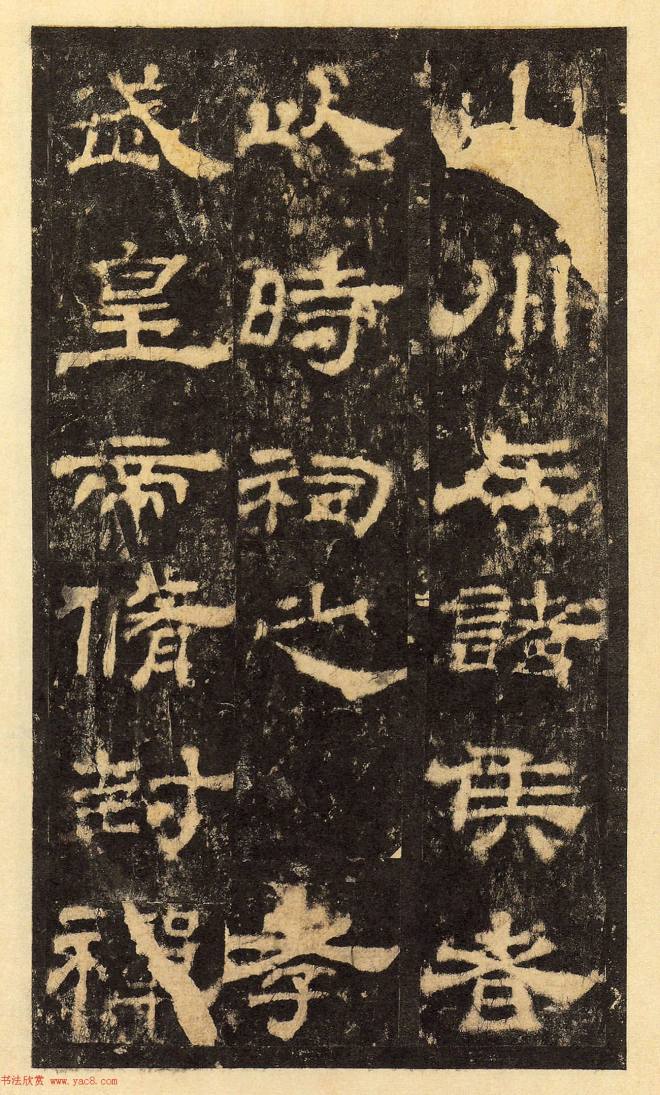 山川在諸侯者
以時祠之孝
武皇帝脩封禪
书法欣赏 www.yac8.com